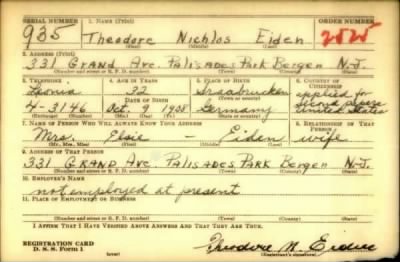 SERIAL NUMBER 1. NAME (Print) ORDER NUMBER
935 Theodore Nichlos Eiden 2525
(First) (Middle) (Last)
2. ADDRESS (Print)
331 GRAND Ave. Palisades Park Bergen N-J.
(Number and street or R. F. D. number) (Town) (County) (State)
3. TELEPHONE 4. AGE IN YEARS 5. PLACE OF BIRTH 6. COUNTRY OF CITIZENSHIP
Leonia 32 Saabrucken applied for
DATE OF BIRTH second papers
4-3146 Oct. 9 1908 Germany United States
7. NAME OF PERSON WHO WILL ALWAYS KNOW YOUR ADDRESS 8. RELATIONSHIP OF THAT PERSON
Mrs. Elsie - Eiden wife
(Mr., Mrs., Miss) (First) (Middle) (Last)
9. ADDRESS OF THAT PERSON
331 GRAND Ave. PALISADES PARK Bergen N-J.
(Number and street or R. F. D. number) (Town) (County) (State)
10. EMPLOYER'S NAME
not employed at present
11. PLACE OF EMPLOYMENT OR BUSINESS
(Number and street or R. F. D. number) (Town) (County) (State)
I AFFIRM THAT I HAVE VERIFIED ABOVE ANSWERS AND THAT THEY ARE TRUE.
REGISTRATION CARD
D. S. S. Form 1 (over) Theodore N. Eiden
(Registrant's signature)